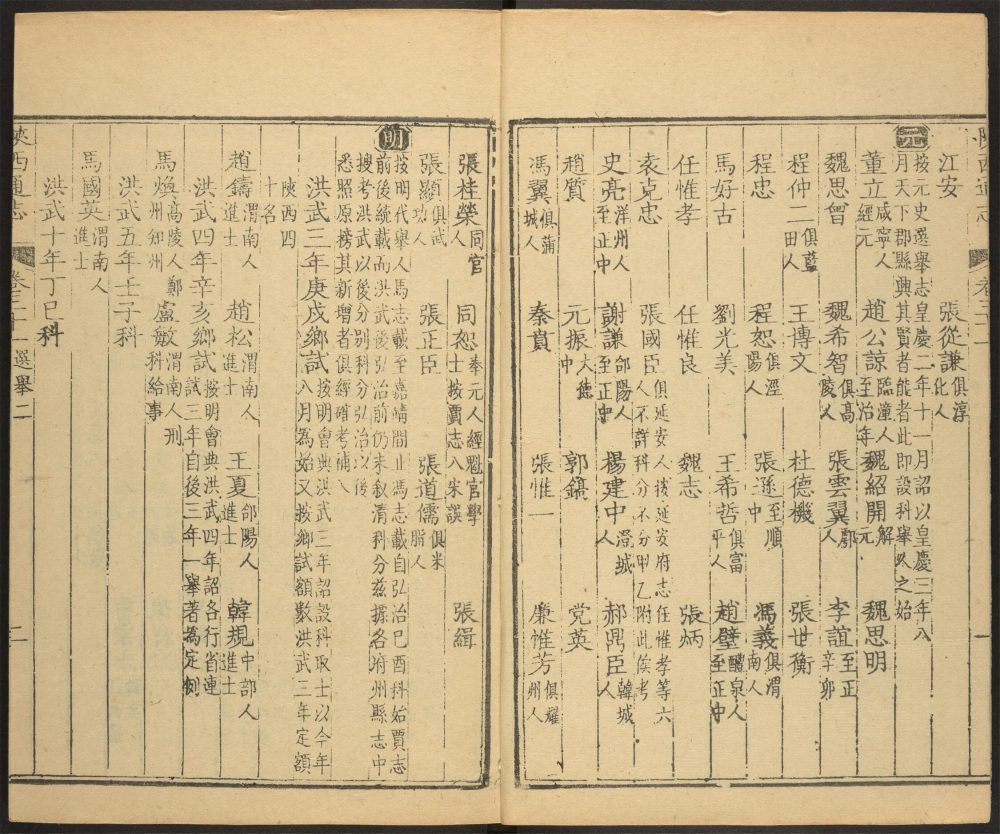 陜西通志
卷三十一
一
江安 張從謙俱淳化人
元 按元史選舉志皇慶二年十一月詔以皇慶三年八
月天下郡縣興其賢者能者此即設科舉人之始
董立咸寧人經元 趙公諒臨潼人至治年 魏紹開解元 魏思明
魏思曾 魏希智俱高陵人 張雲翼鄠人 李誼至正辛卯
程仲二俱藍田人 王博文 杜德機 張世衡
程忠 程恕俱涇陽人 張遜至順中 馮義俱渭南人
馬好古 劉光美 王希哲俱富平人 趙璧醴泉人至正中
任惟孝 任惟良 魏志 張炳
袁克忠 張國臣俱延安人按延安府志任惟孝等六人不詳科分不分甲乙附此俟考
史亮洋州人至正中 謝謙郃陽人至正中 楊建中澄城人 郝禼臣韓城人
趙質 元振大德中 郭鎬 党英
馮翼俱蒲城人 秦蕡 張惟一 廉惟芳俱耀州人
張桂榮同官人 同恕奉元人經魁官學士按賈志入宋誤 張緝
張顯俱武功人 張正臣 張道儒俱米脂人
明 按明代舉人馬志載至嘉靖間止馮志載自弘治己酉科始賈志
前後統載而洪武後弘治前仍未叙清科分茲據各府州縣志中
搜考洪武以後分别科分弘治以後
悉照原榜其新增者俱經確考補入
洪武三年庚戌鄉試按明會典洪武三年詔設科取士以今年八月為始又按鄉試額數洪武三年定額
陜西四十名
趙鑄渭南人進士 趙松渭南人進士 王夏郃陽人進士 韓規中部人進士
洪武四年辛亥鄉試按明會典洪武四年詔各行省連試三年自後三年一舉著為定例
馬煥高陵人鄭州知州 盧敏渭南人刑科給事
洪武五年壬子科
馬國英渭南人進士
洪武十年丁巳科
陜西通志
卷三十一 選舉二
二